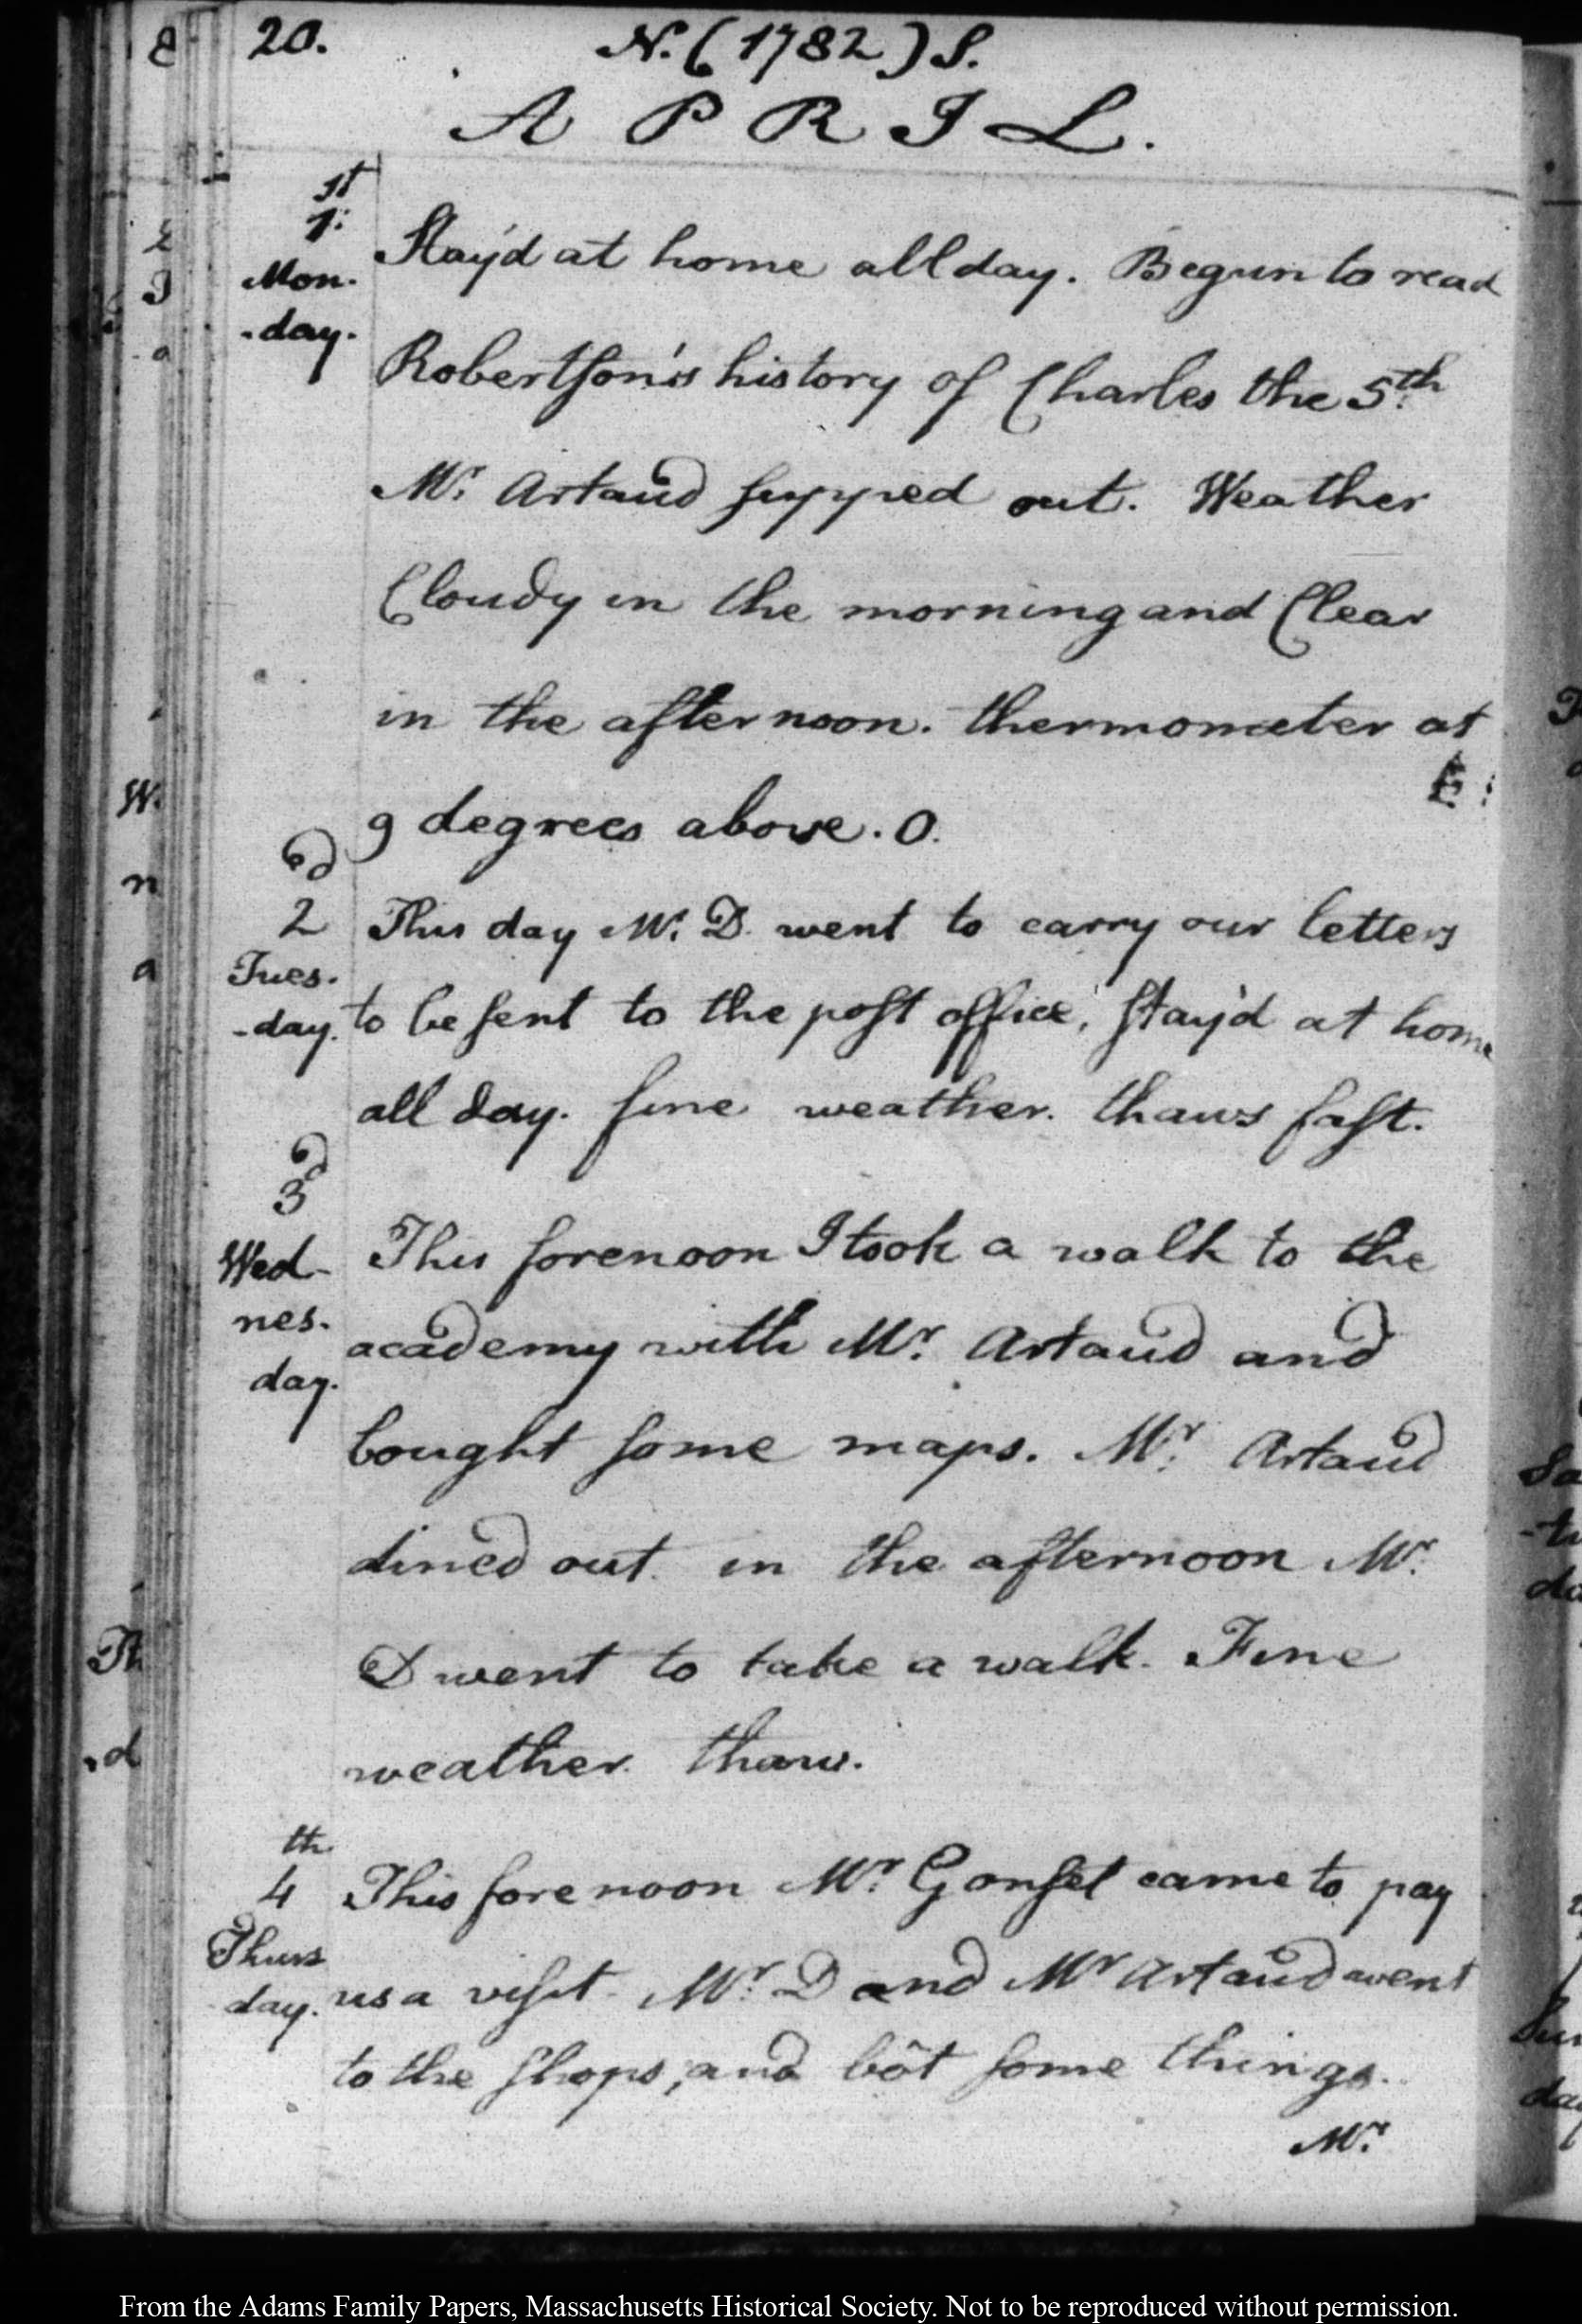 20. N. (1782) S.
APRIL.
1st
Mon-
-day.
Stay'd at home all day. Begun to read
Robertson's history of Charles the 5th.
Mr. Artaud supped out. Weather
Cloudy in the morning and Clear
in the afternoon. thermometer at
9 degrees above. 0.
2d
Tues-
-day.
This day Mr. D. went to carry our letters
to be sent to the post office, stay'd at home
all day. fine weather. thaws fast.
3d
Wed-
nes-
day.
This forenoon I took a walk to the
academy with Mr. Artaud and
bought some maps. Mr. Artaud
dined out. in the afternoon Mr.
D went to take a walk. Fine
weather. thaw.
4th
Thurs
day.
This forenoon Mr. Gonsel came to pay
us a visit. Mr. D and Mr Artaud went
to the shops, and bôt some things.
Mr.
From the Adams Family Papers, Massachusetts Historical Society. Not to be reproduced without permission.